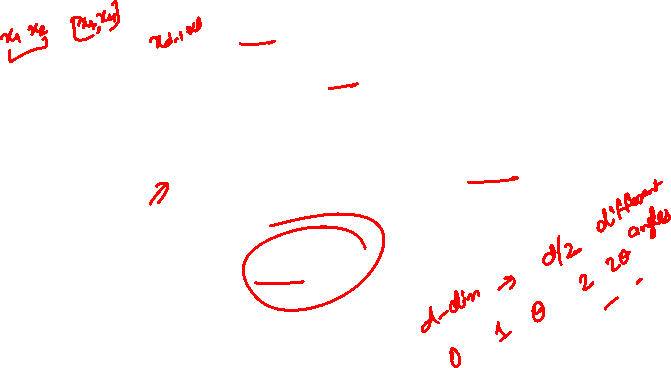 x₁ x₂ [x₃, x₄] x_{d-1} x_d
d-dim → d/2 different angles
0 1 θ 2 2θ